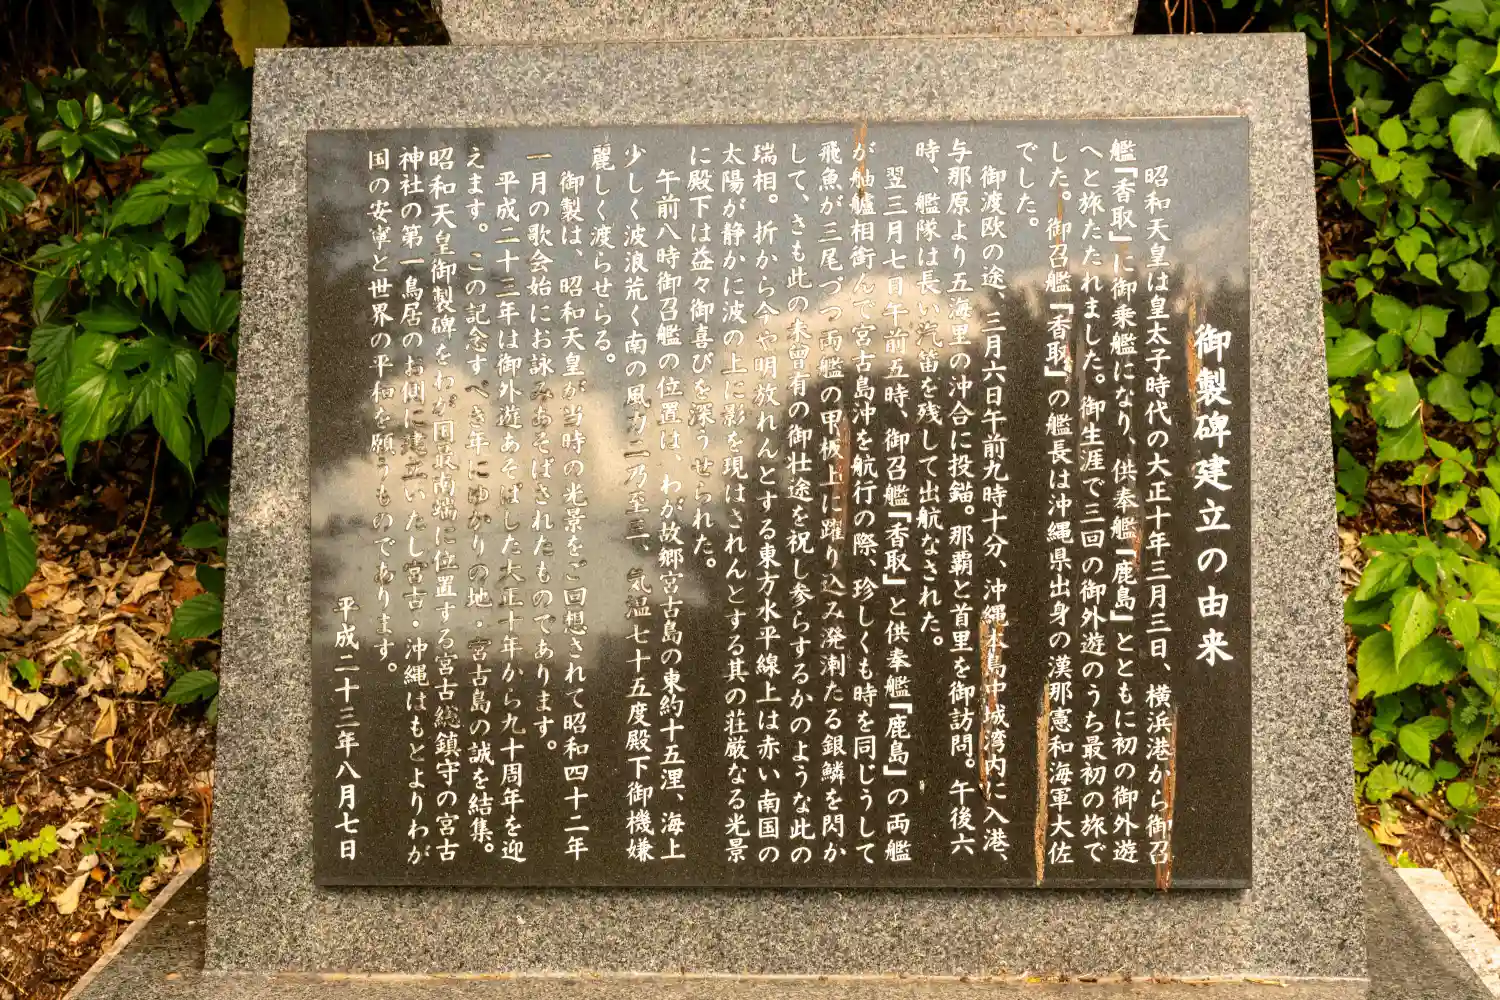 御製碑建立の由来
昭和天皇は皇太子時代の大正十年三月三日、横浜港から御召
艦「香取」に御乗艦になり、供奉艦「鹿島」とともに初の御外遊
へと旅たたれました。御生涯で三回の御外遊のうち最初の旅で
した。御召艦「香取」の艦長は沖縄県出身の漢那憲和海軍大佐
でした。
御渡欧の途、三月六日午前九時十分、沖縄本島中城湾内に入港、
与那原より五海里の沖合に投錨。那覇と首里を御訪問。午後六
時、艦隊は長い汽笛を残して出航なされた。
翌三月七日午前五時、御召艦「香取」と供奉艦「鹿島」の両艦
が舳艫相銜んで宮古島沖を航行の際、珍しくも時を同じうして
飛魚が三尾づつ両艦の甲板上に躍り込み溌溂たる銀鱗を閃か
して、さも此の未曾有の御壮途を祝し参らするかのような此の
瑞相。折から今や明放れんとする東方水平線上は赤い南国の
太陽が静かに波の上に影を現はされんとする其の荘厳なる光景
に殿下は益々御喜びを深うせられた。
午前八時御召艦の位置は、わが故郷宮古島の東約十五浬、海上
少しく波浪荒く南の風力二乃至三、気温七十五度殿下御機嫌
麗しく渡らせらる。
御製は、昭和天皇が当時の光景をご回想されて昭和四十二年
一月の歌会始にお詠みあそばされたものであります。
平成二十三年は御外遊あそばした大正十年から九十周年を迎
えます。この記念すべき年にゆかりの地・宮古島の誠を結集。
昭和天皇御製碑をわが国最南端に位置する宮古総鎮守の宮古
神社の第一鳥居のお側に建立いたし宮古・沖縄はもとよりわが
国の安寧と世界の平和を願うものであります。
平成二十三年八月七日